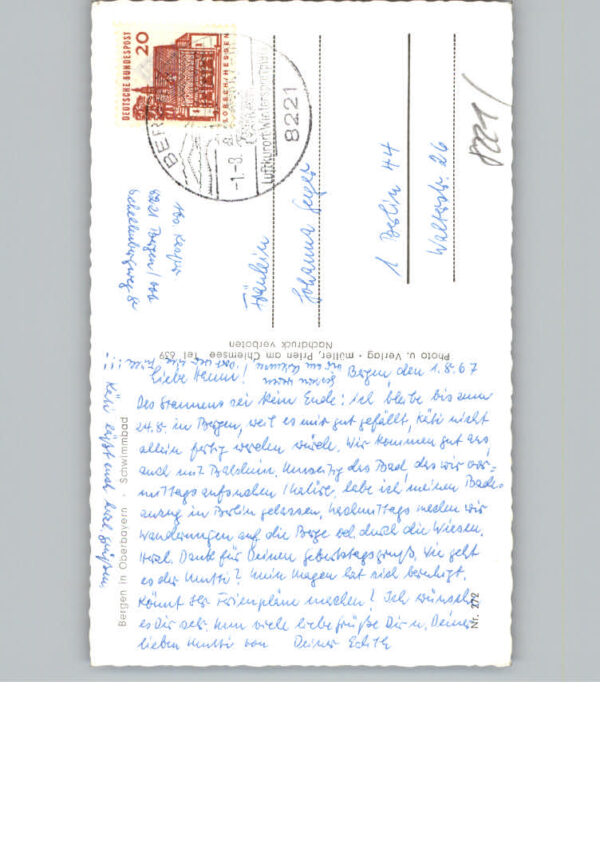 DEUTSCHE BUNDESPOST
20
LORSCH/HESSEN
BERGEN
-1.-8.
Luftkurort Wintersportplatz
8221
8221
Abs. Kaspar
8221 Bergen/Obb
Fräulein
Johanna Geyer
1 Berlin 44
Walterstr. 26
Photo u. Verlag · Müller, Prien am Chiemsee Tel. 639
Nachdruck verboten
Bergen in Oberbayern · Schwimmbad
Nr. 272
Bergen, den 1.8.67
Liebe Hanni!
Des Staunens sei kein Ende: ich bleibe bis zum
24.8. in Bergen, weil es mir gut gefällt, Käti nicht
allein fertig werden würde. Wir kommen gut aus,
auch mit Balslein. Umseitig das Bad, das wir vor-
mittags aufsuchen! Natürl. habe ich meinen Bade-
anzug in Berlin gelassen, nachmittags machen wir
Wanderungen auf die Berge od. durch die Wiesen.
Herzl. Dank für Deinen Geburtstagsgruß. Wie geht
es der Mutti? Mein Magen hat sich beruhigt.
Könnt Ihr Ferienpläne machen? Ich wünsche
es Dir sehr. Nun viele liebe Grüße Dir u. Deiner
lieben Mutti von Deiner Edith
Käti läßt auch herzl. grüßen,